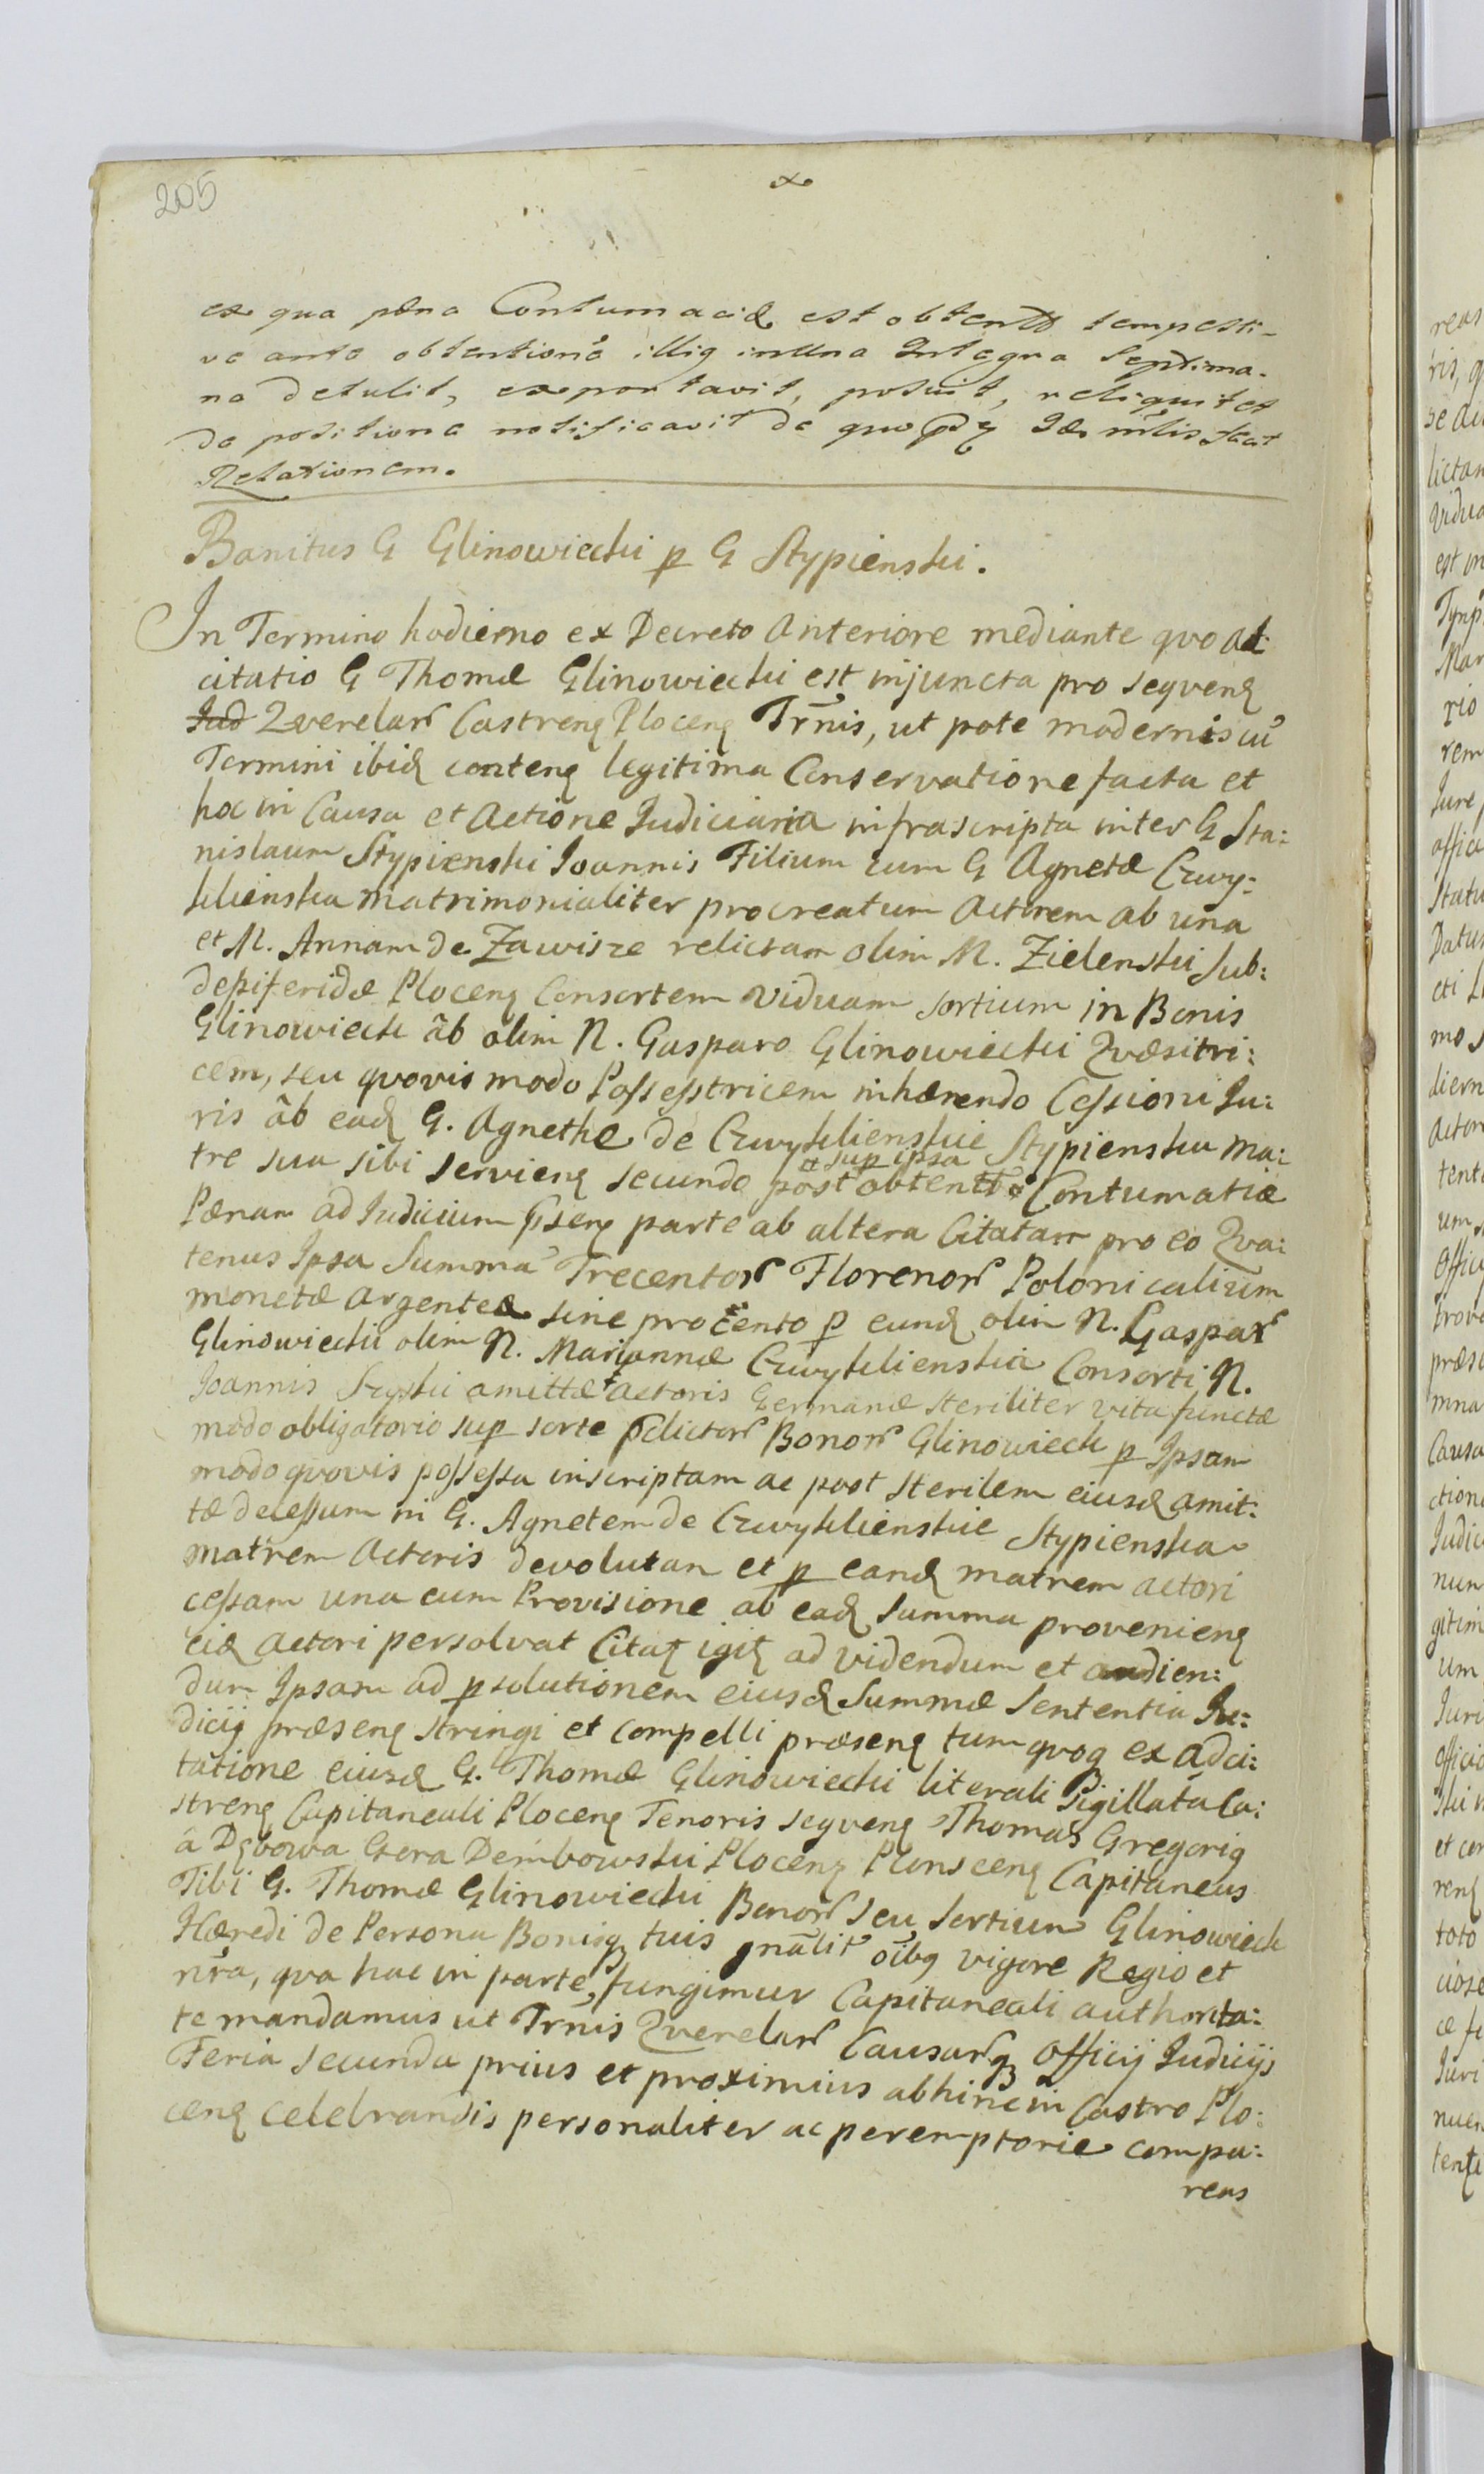 205
ex qua pæna Contumaciæ est obtenta tempesti-
ve ante obtentionẽ illig in Una Integra Septima-
na detulit, exportavit, posuit, reliquit et
de positione notificavit de quo Idem mlis fecit
Relationem.
Banitus G Glinowiecki p G Stypienski.
In Termino hodierno ex Decreto Anteriore mediante quo ad
citatio G Thomæ Glinowiecki est injuncta pro seqvenꝫ
Jud Qverelarũ Castrenꝫ Plocenꝫ Trñis, ut pote modernis cũ
Termini ibid contenꝫ legitima Conservatione facta et
hoc in Causa et Actione Judiciaria infrascripta inter G Sta:
nislaum Stypienski Joannis Filium cum G Agnetæ Cwy:
klienska matrimonialiter procreatum Actorem ab una
et M. Annam de Zawisze relictam olim M. Zielenski Sub:
depiferidæ Plocenꝫ Consortem Viduam sortium in Bonis
Glinowieck ãb olim N. Gasparo Glinowiecki Qvæsitri:
cem, seu qvovis modo Possesstricem inhærendo Cessioni Ju:
ris ãb ead G. Agnethe de Cwyklienskie Stypienska ma:
sup ipsa
tre sua sibi servienꝫ secundo post obtentæ Contumatiæ
Pænam ad Judicium p̃senꝫ parte ab altera Citatam pro eo Qva:
tenus Ipsa Summã Trecentorũ Florenorũ Polonicalium
monetæ argenteæ sine procento p eund olim N. Gaspar
Glinowiecki olim N. Mariannæ Cwyklienska Consorti N.
Joannis Szyski amittæ Actoris Germanæ steriliter vita functæ
modo obligatorio sup sorte p̃dictorũ Bonorũ Glinowieck p Ipsam
modo qvovis possessa inscriptam ac post sterilem eiusd amit:
tæ decessum in G. Agnetem de Cwyklienskie Stypienska
matrem Actoris devolutam et p eand matrem actori
cessam una cum Provisione ab ead Summa provenienꝫ
eid Actori persolvat Citaꝫ igiꝫ ad videndum et audien:
dum Ipsam ad psolutionem eiusd Summæ Sententia Ju:
dicij præsenꝫ stringi et compelli præsenꝫ tum qvoq ex adci:
tatione eiusd G. Thomæ Glinowiecki literali Sigillata Ca:
strenꝫ Capitaneali Plocenꝫ Tenoris seqvenꝫ Thomas Gregorig
â Dębowa Gora Dembowski Plocenꝫ Plonscenꝫ Capitaneus
Tibi G. Thomæ Glinowiecki Bonorũ seu Sortium Glinowieck
Hæredi de Persona Bonisq tuis gnãlit oĩbq vigore Regio et
nrã, qva hac in parte fungimur Capitaneali authorita:
te mandamus ut Trñis Qverelarũ Causarũq Officij Judicijs
Feria secunda prius et proximius abhinc in Castro Plo:
cenꝫ celebrandis personaliter ac peremptorie compa:
reas